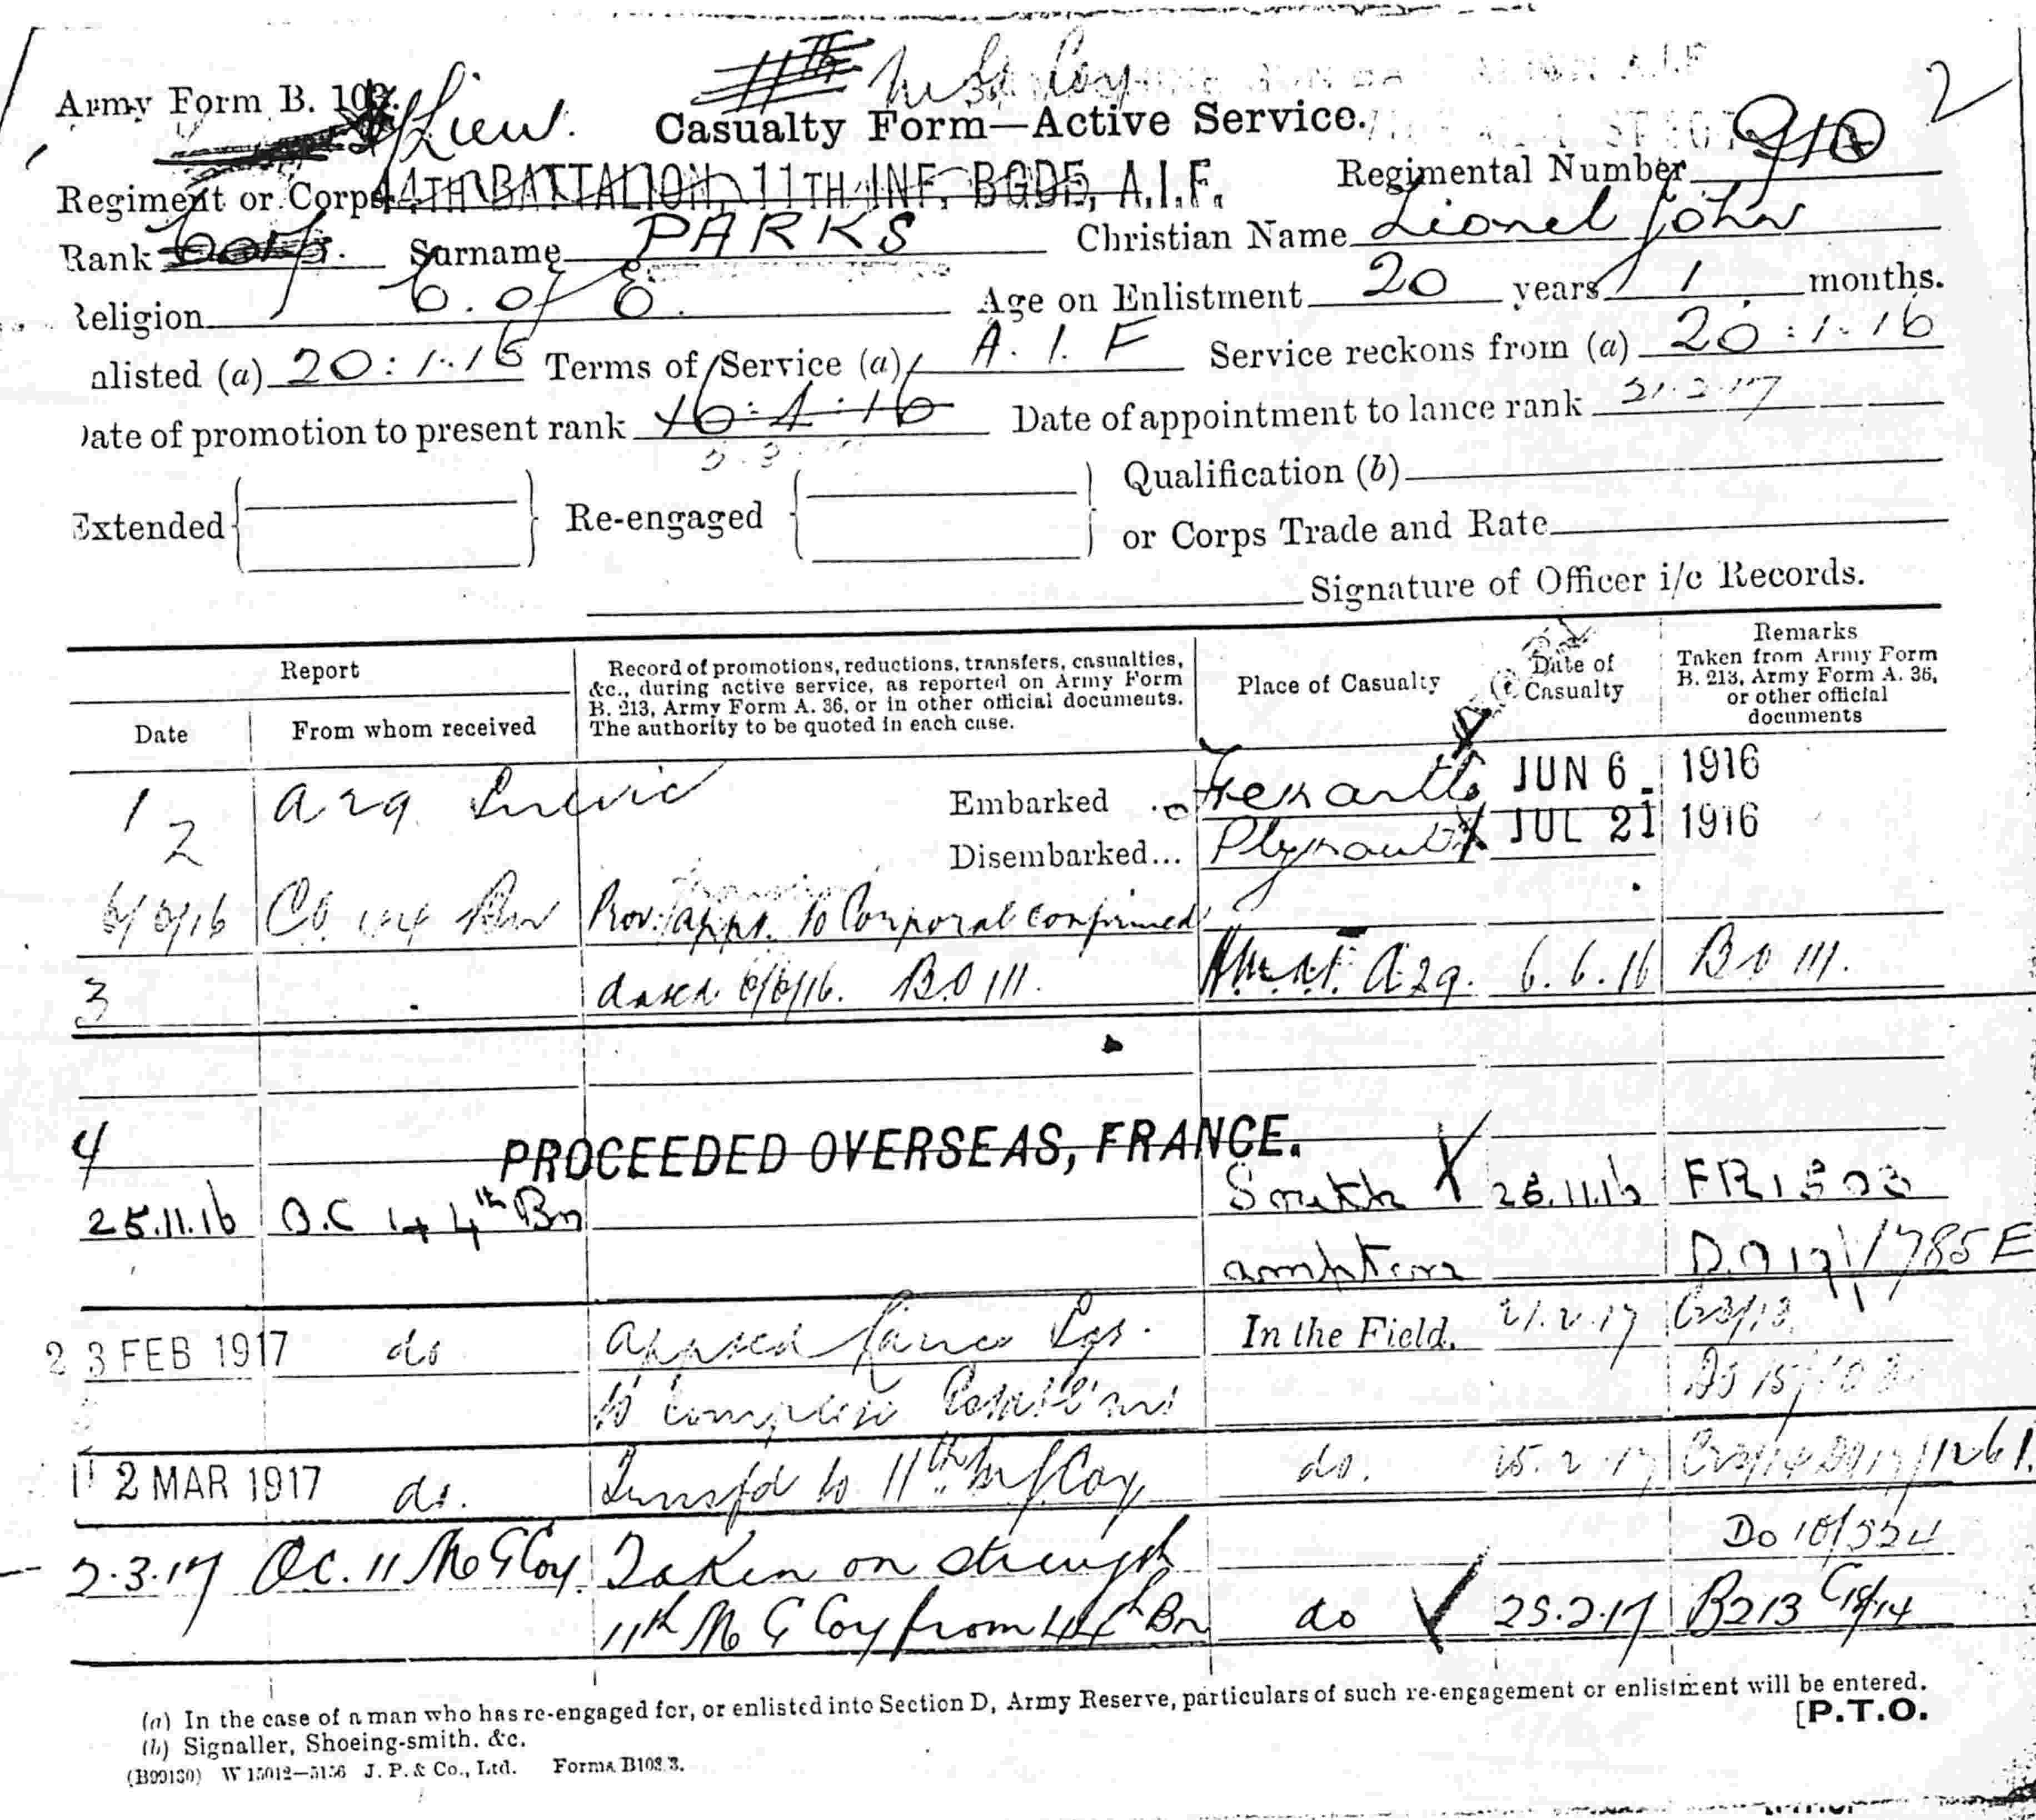 M.G. Coy
2
Army Form B. 103.
Lieu.
Casualty Form—Active Service.
Regiment or Corps 44TH BATTALION, 11TH INF. BGDE, A.I.F.
Regimental Number 910
Rank Corp. Surname PARKS Christian Name Lionel John
Religion C. of E. Age on Enlistment 20 years 1 months.
nlisted (a) 20:1.16 Terms of Service (a) A.I.F Service reckons from (a) 20:1.16
Date of promotion to present rank 16:4:16 Date of appointment to lance rank 21.2.17
Extended Re-engaged Qualification (b)
or Corps Trade and Rate
Signature of Officer i/c Records.
Report
Date
From whom received
Record of promotions, reductions, transfers, casualties, &c., during active service, as reported on Army Form B. 213, Army Form A. 36, or in other official documents. The authority to be quoted in each case.
Place of Casualty
Date of Casualty
Remarks Taken from Army Form B. 213, Army Form A. 36, or other official documents
1 A29 Embarked Fremantle JUN 6. 1916
2 Disembarked... Plymouth JUL 21 1916
6/6/16 CO 44 Bn Prov. appt. to Corporal confirmed
3 dated 6/6/16. BO 111. H.M.A.T. A29. 6.6.16 BO 111.
4 PROCEEDED OVERSEAS, FRANCE.
25.11.16 O.C 44th Bn South 25.11.16 FR1503
ampton D.O 19/1785E
23 FEB 1917 do Appted Lance Sgt. In the Field. 21.2.17
to complete
2 MAR 1917 do. Transfd to 11th M/G Coy do. 25.2.17
Do 10/334
2.3.17 OC. 11 M G Coy. Taken on strength
11th M G Coy from 44th Bn do 25.2.17 B213
(a) In the case of a man who has re-engaged for, or enlisted into Section D, Army Reserve, particulars of such re-engagement or enlistment will be entered.
(b) Signaller, Shoeing-smith, &c.
[P.T.O.
(B99130) W 15012—5156 J. P. & Co., Ltd. Forms B103/3.